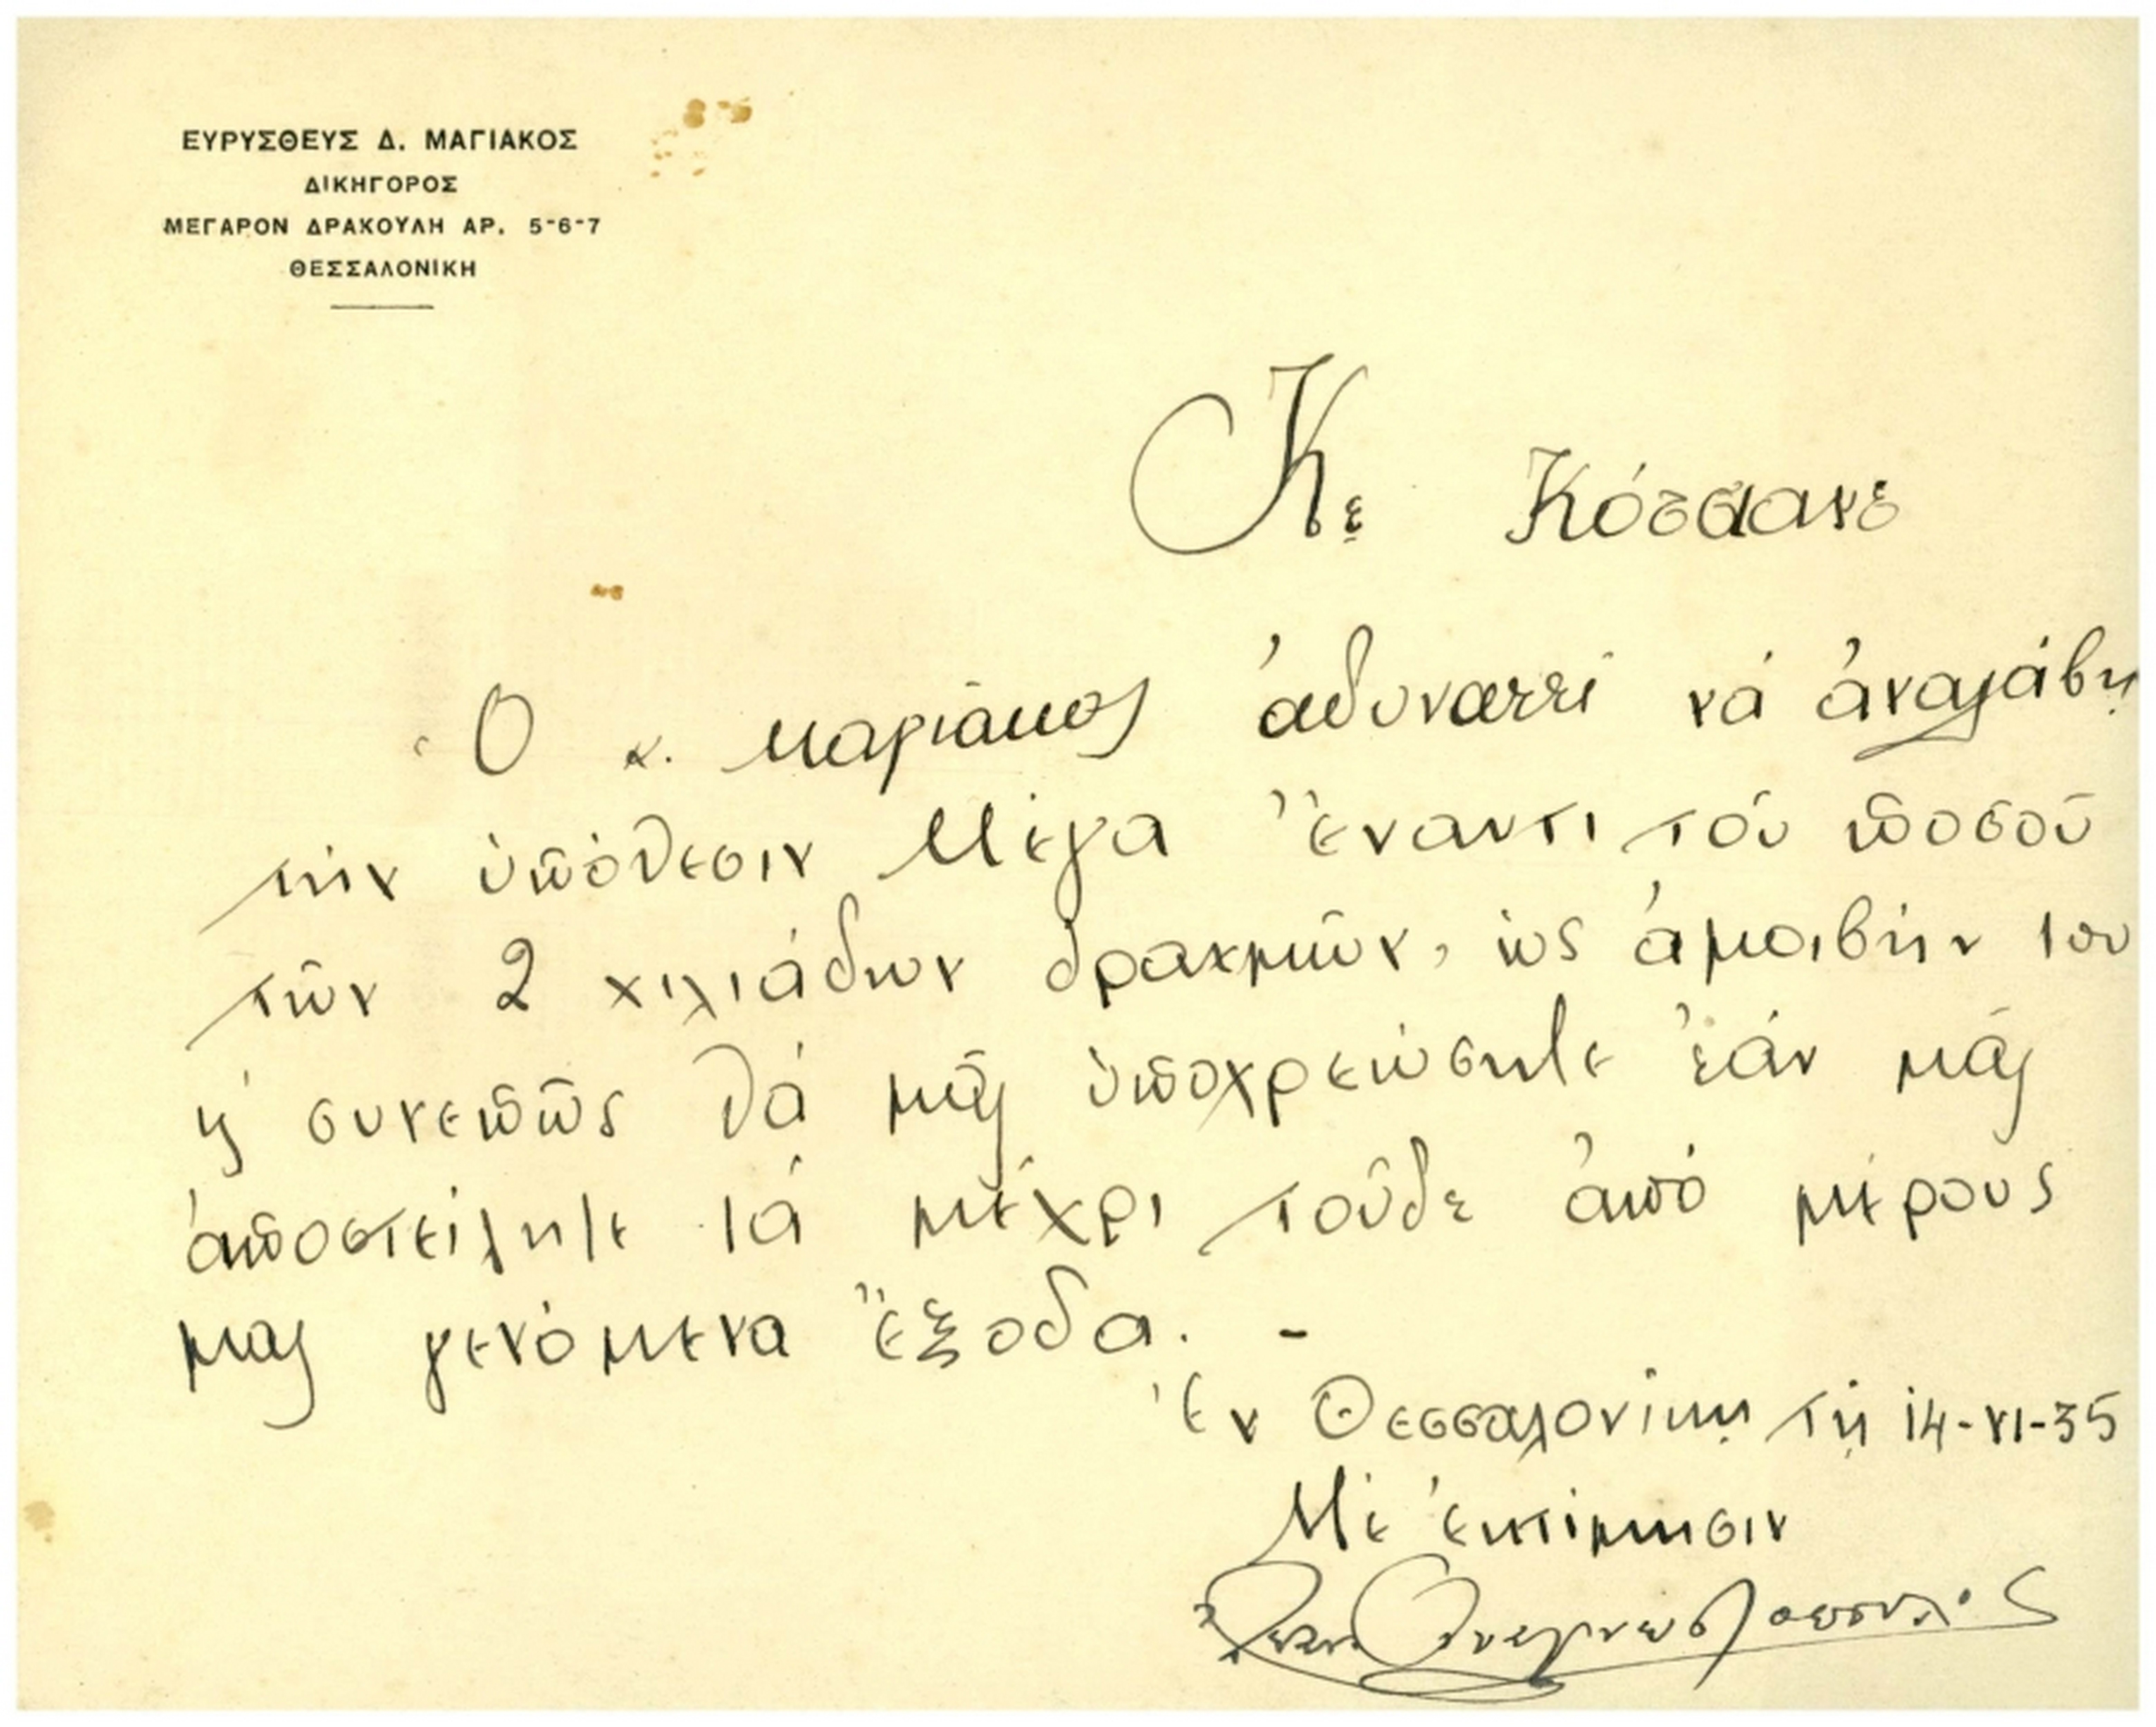 ΕΥΡΥΣΘΕΥΣ Δ. ΜΑΓΙΑΚΟΣ
ΔΙΚΗΓΟΡΟΣ
ΜΕΓΑΡΟΝ ΔΡΑΚΟΥΛΗ ΑΡ. 5-6-7
ΘΕΣΣΑΛΟΝΙΚΗ
Κε Κότσανε
Ὁ κ. Μαγιάκος ἀδυνατεῖ νά ἀναλάβῃ
τήν ὑπόθεσιν Μέγα ἔναντι τοῦ ποσοῦ
τῶν 2 χιλιάδων δραχμῶν, ὡς ἀμοιβήν του
ἡ συνεπῶς θά μᾶς ὑποχρεώσητε ἐάν μᾶς
ἀποστείλητε τά μέχρι τοῦδε ἀπό μέρους
μας γενόμενα ἔξοδα. -
Ἐν Θεσσαλονίκῃ τῇ 14-VI-35
Μέ ἐκτίμησιν